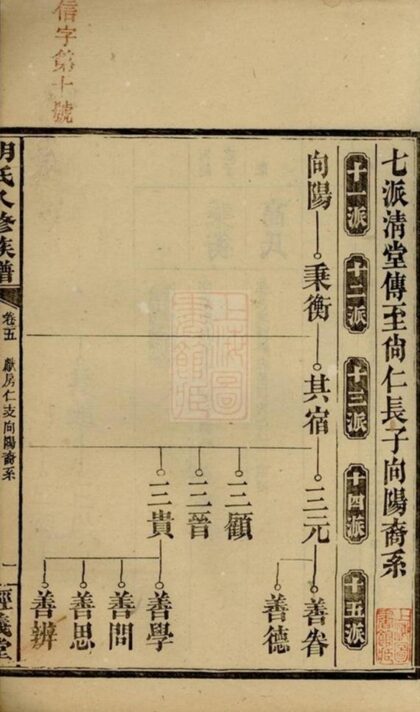 信字第十號
七派清堂傳至尙仁長子向陽裔系
十一派 十二派 十三派 十四派 十五派
向陽 秉衡 其宿 三元 善眷
善德
三顧
三晉
三貴 善學
善問
善思
善辨
胡氏八修族譜 卷五 獻房仁支向陽裔系 一 經義堂
上海圖書館藏